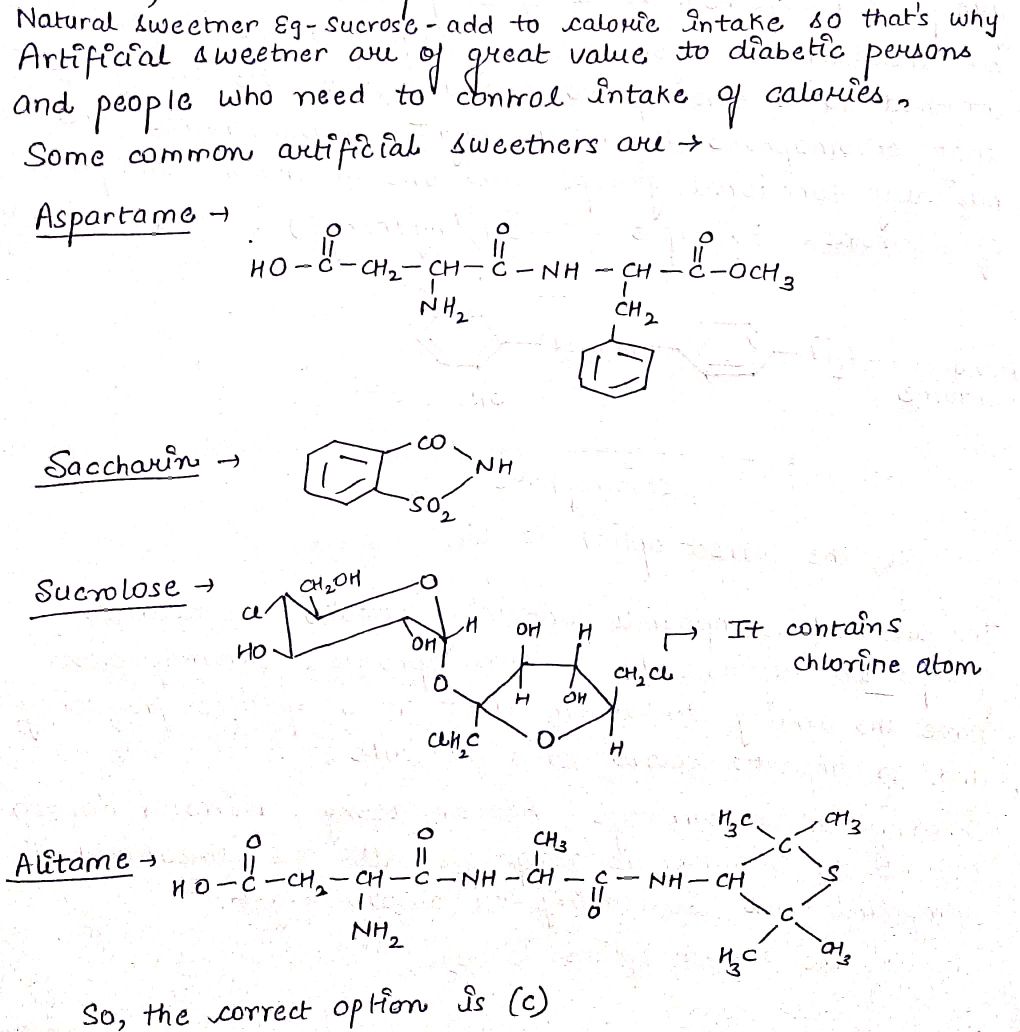 Natural sweetner Eg- Sucrose - add to calorie intake so that's why
Artificial sweetner are of great value to diabetic persons
and people who need to control intake of calories,
Some common artificial sweetners are →
Aspartame →
O O O
HO - C - CH2 - CH - C - NH - CH - C - OCH3
NH2 CH2
Saccharin →
CO
NH
SO2
Sucrolose →
CH2OH O
Cl
HO OH H
O
OH H
CH2Cl
H OH
ClH2C O H
→ It contains
chlorine atom
Alitame →
O O CH3
HO - C - CH2 - CH - C - NH - CH - C - NH - CH
NH2 O
H3C C CH3
S
C
H3C CH3
So, the correct option is (c)